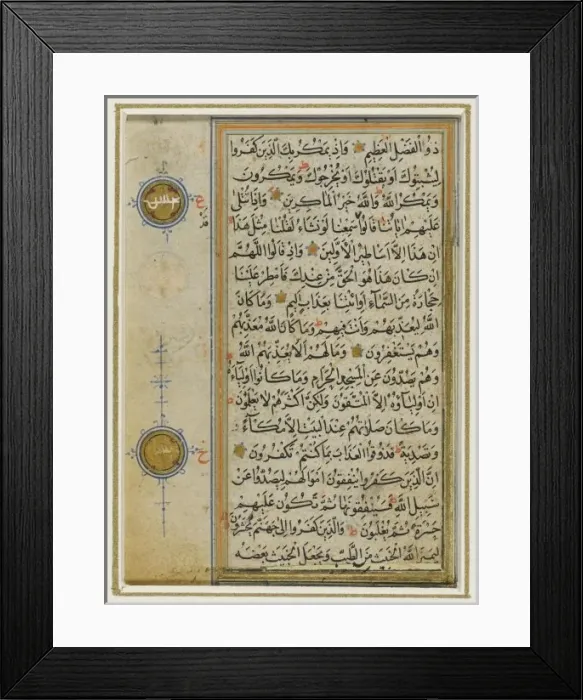 ذو الفضل العظيم واذ يمكر بك الذين كفروا
ليثبتوك او يقتلوك او يخرجوك ويمكرون
ويمكر الله والله خير الماكرين واذا تتلى
عليهم اياتنا قالوا سمعنا لو نشاء لقلنا مثل هذا
ان هذا الا اساطير الاولين واذ قالوا اللهم
ان كان هذا هو الحق من عندك فامطر علينا
حجارة من السماء او ائتنا بعذاب اليم وما كان
الله ليعذبهم وانت فيهم وما كان الله معذبهم
وهم يستغفرون وما لهم الا يعذبهم الله
وهم يصدون عن المسجد الحرام وما كانوا اولياءه
ان اولياؤه الا المتقون ولكن اكثرهم لا يعلمون
وما كان صلاتهم عند البيت الا مكاء
وتصدية فذوقوا العذاب بما كنتم تكفرون
ان الذين كفروا ينفقون اموالهم ليصدوا عن
سبيل الله فسينفقونها ثم تكون عليهم
حسرة ثم يغلبون والذين كفروا الى جهنم يحشرون
ليميز الله الخبيث من الطيب ويجعل الخبيث بعضه